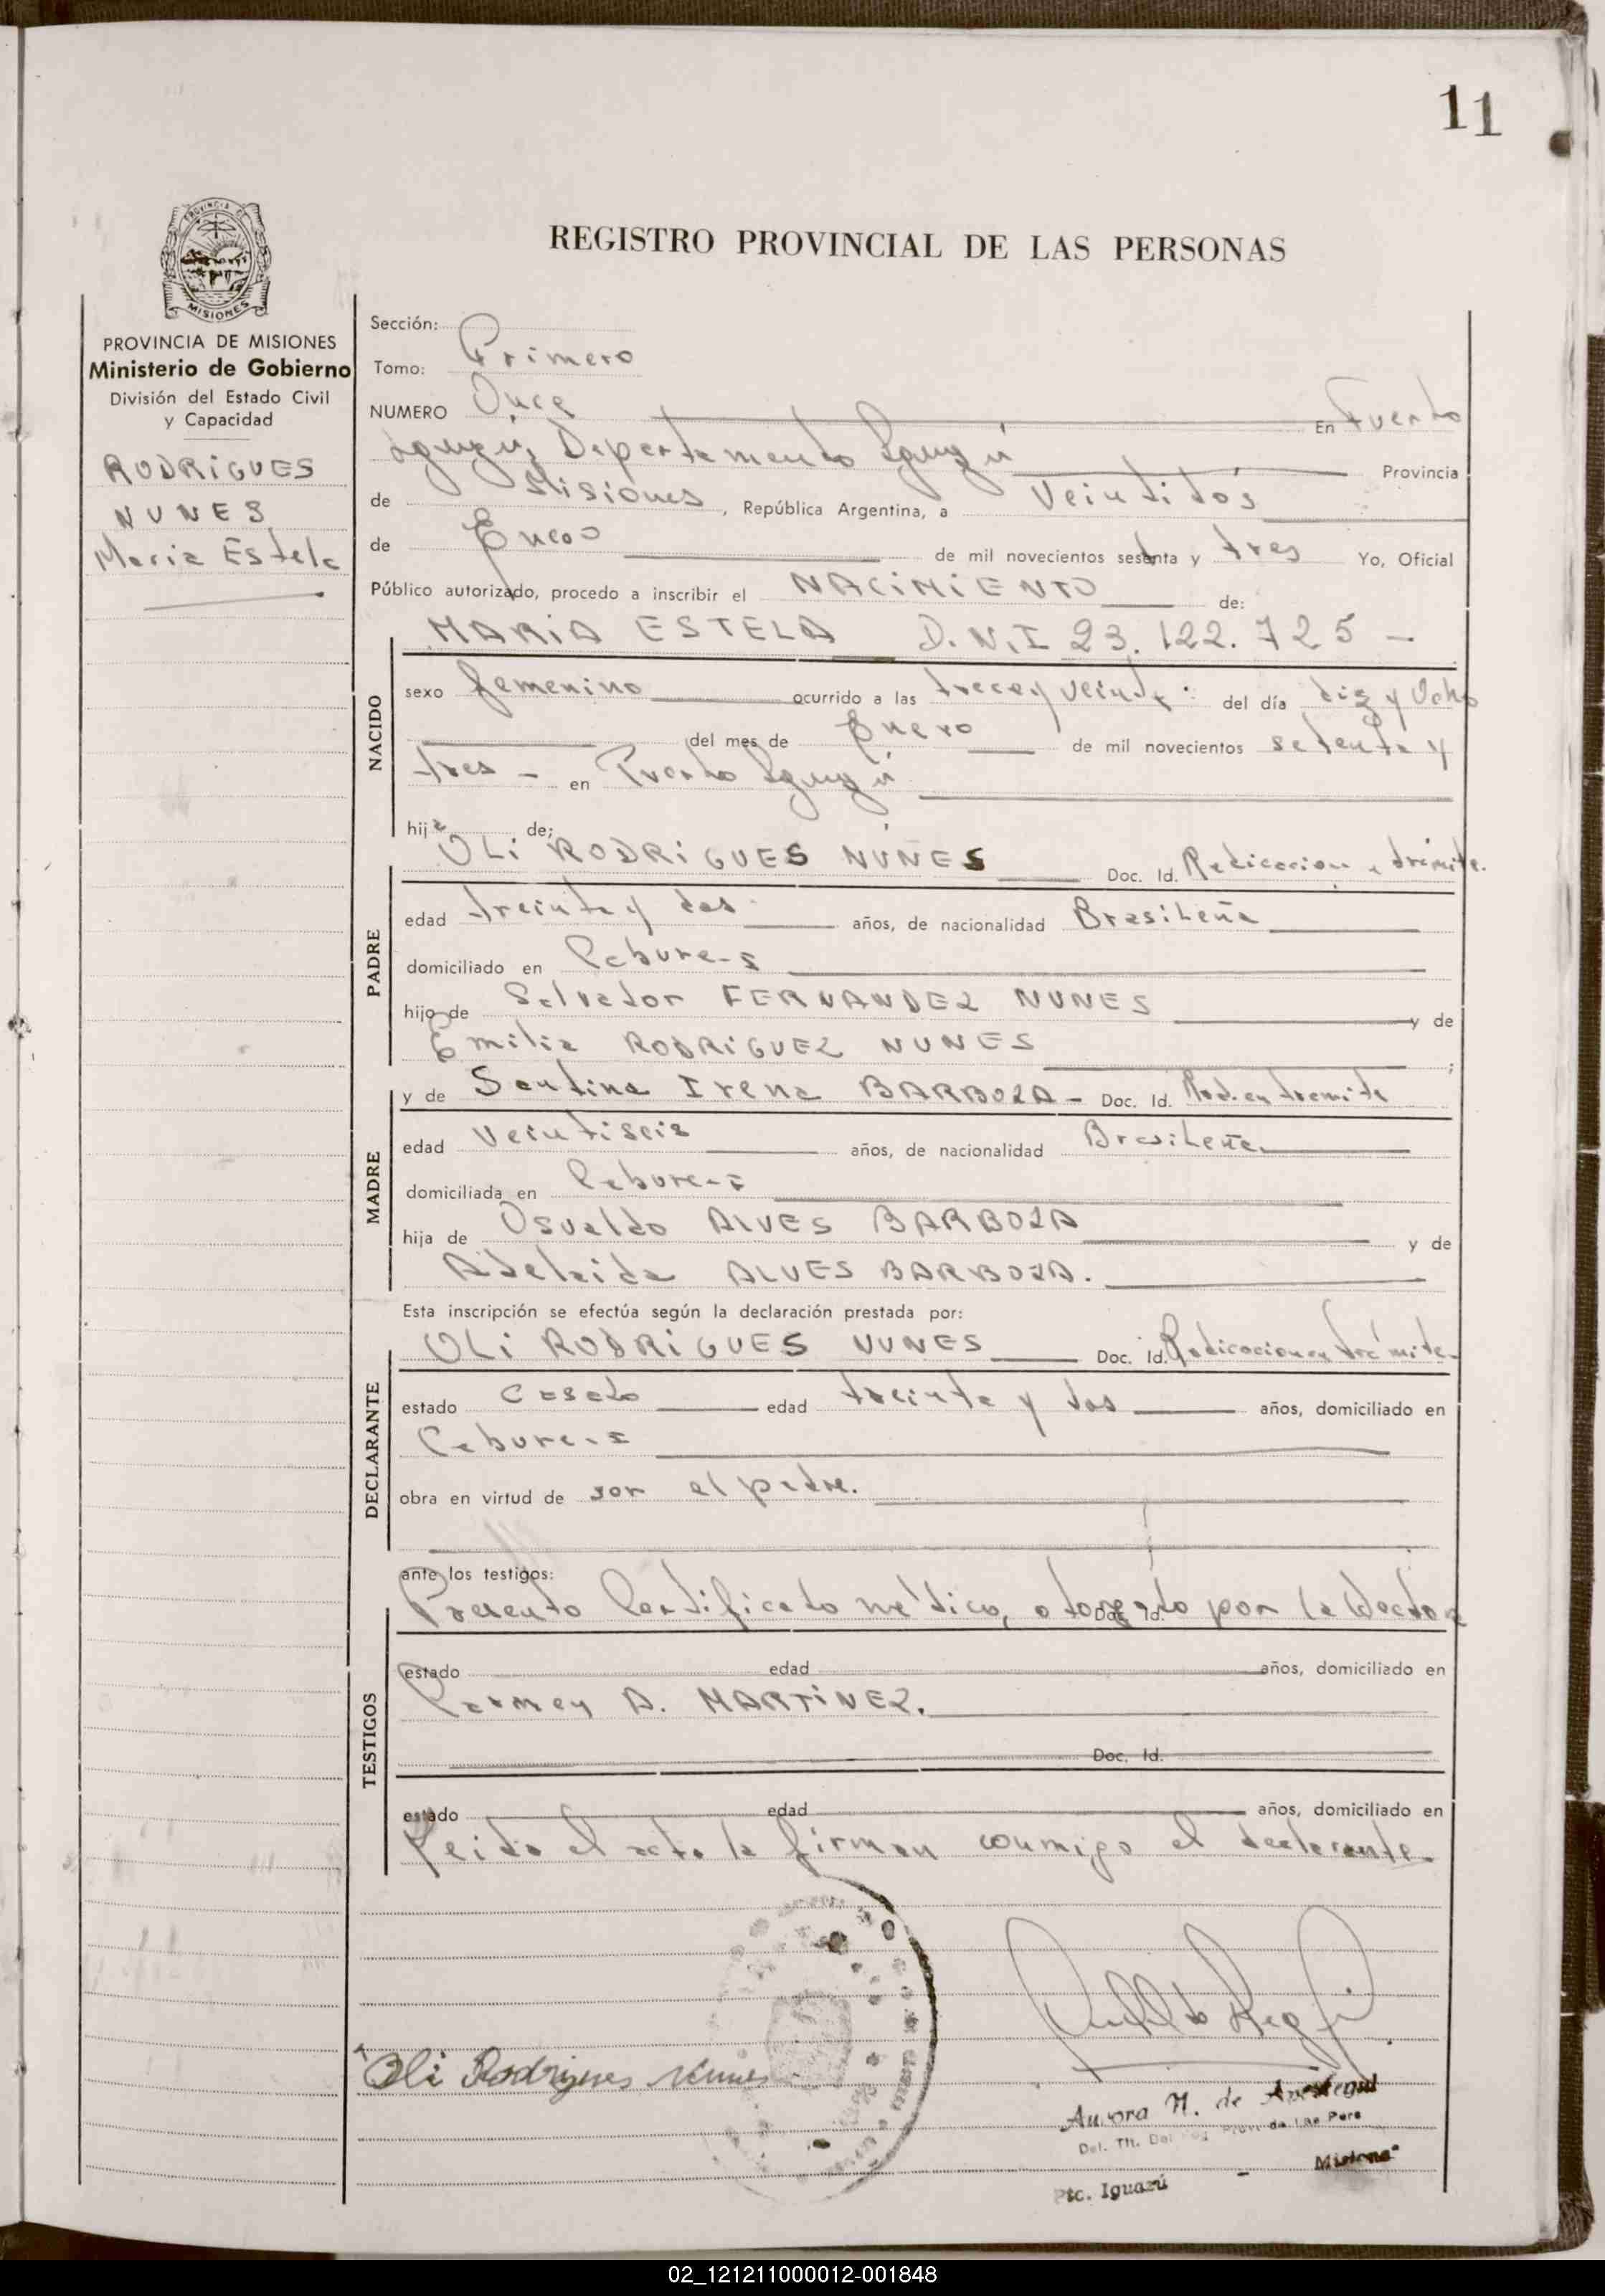 11
REGISTRO PROVINCIAL DE LAS PERSONAS
PROVINCIA DE
MISIONES
PROVINCIA DE MISIONES
Ministerio de Gobierno
División del Estado Civil
y Capacidad
RODRIGUES
NUNES
Maria Estela
Sección:
Tomo: Primero
NUMERO Once En Puerto
Iguazú, Departamento Iguazú Provincia
de Misiones, República Argentina, a Veintidós
de Enero de mil novecientos setenta y tres Yo, Oficial
Público autorizado, procedo a inscribir el NACIMIENTO de:
MARIA ESTELA D.N.I 23.122.725 -
NACIDO
sexo femenino ocurrido a las trece y veinte del día diez y Ocho
del mes de Enero de mil novecientos setenta y
tres - en Puerto Iguazú
hija de:
OLI RODRIGUES NUNES Doc. Id. Radicacion trámite.
PADRE
edad treinta y dos años, de nacionalidad Brasileña
domiciliado en
hijo de Salvador FERNANDEZ NUNES y de
Emilia RODRIGUEZ NUNES ;
MADRE
y de Santina Irena BARBOZA - Doc. Id. Rad. en tramite
edad Veintiseis años, de nacionalidad Brasileña
domiciliada en
hija de Osvaldo ALVES BARBOZA y de
Adelaida ALVES BARBOZA.
Esta inscripción se efectúa según la declaración prestada por:
OLI RODRIGUES NUNES Doc. Id. Radicacion en trámite.
DECLARANTE
estado Casado edad treinta y dos años, domiciliado en
obra en virtud de ser el padre.
ante los testigos:
Presento Certificado médico, otorgado por la Doctora
Doc. Id.
TESTIGOS
estado edad años, domiciliado en
Carmen A. MARTINEZ.
Doc. Id.
estado edad años, domiciliado en
Leida el acta la firman conmigo el declarante.
Oli Rodrigues Nunes
Aurora N. de
Del. Tit. Del. Prov. de Las Pers
Pto. Iguazú - Misiones
02_121211000012-001848